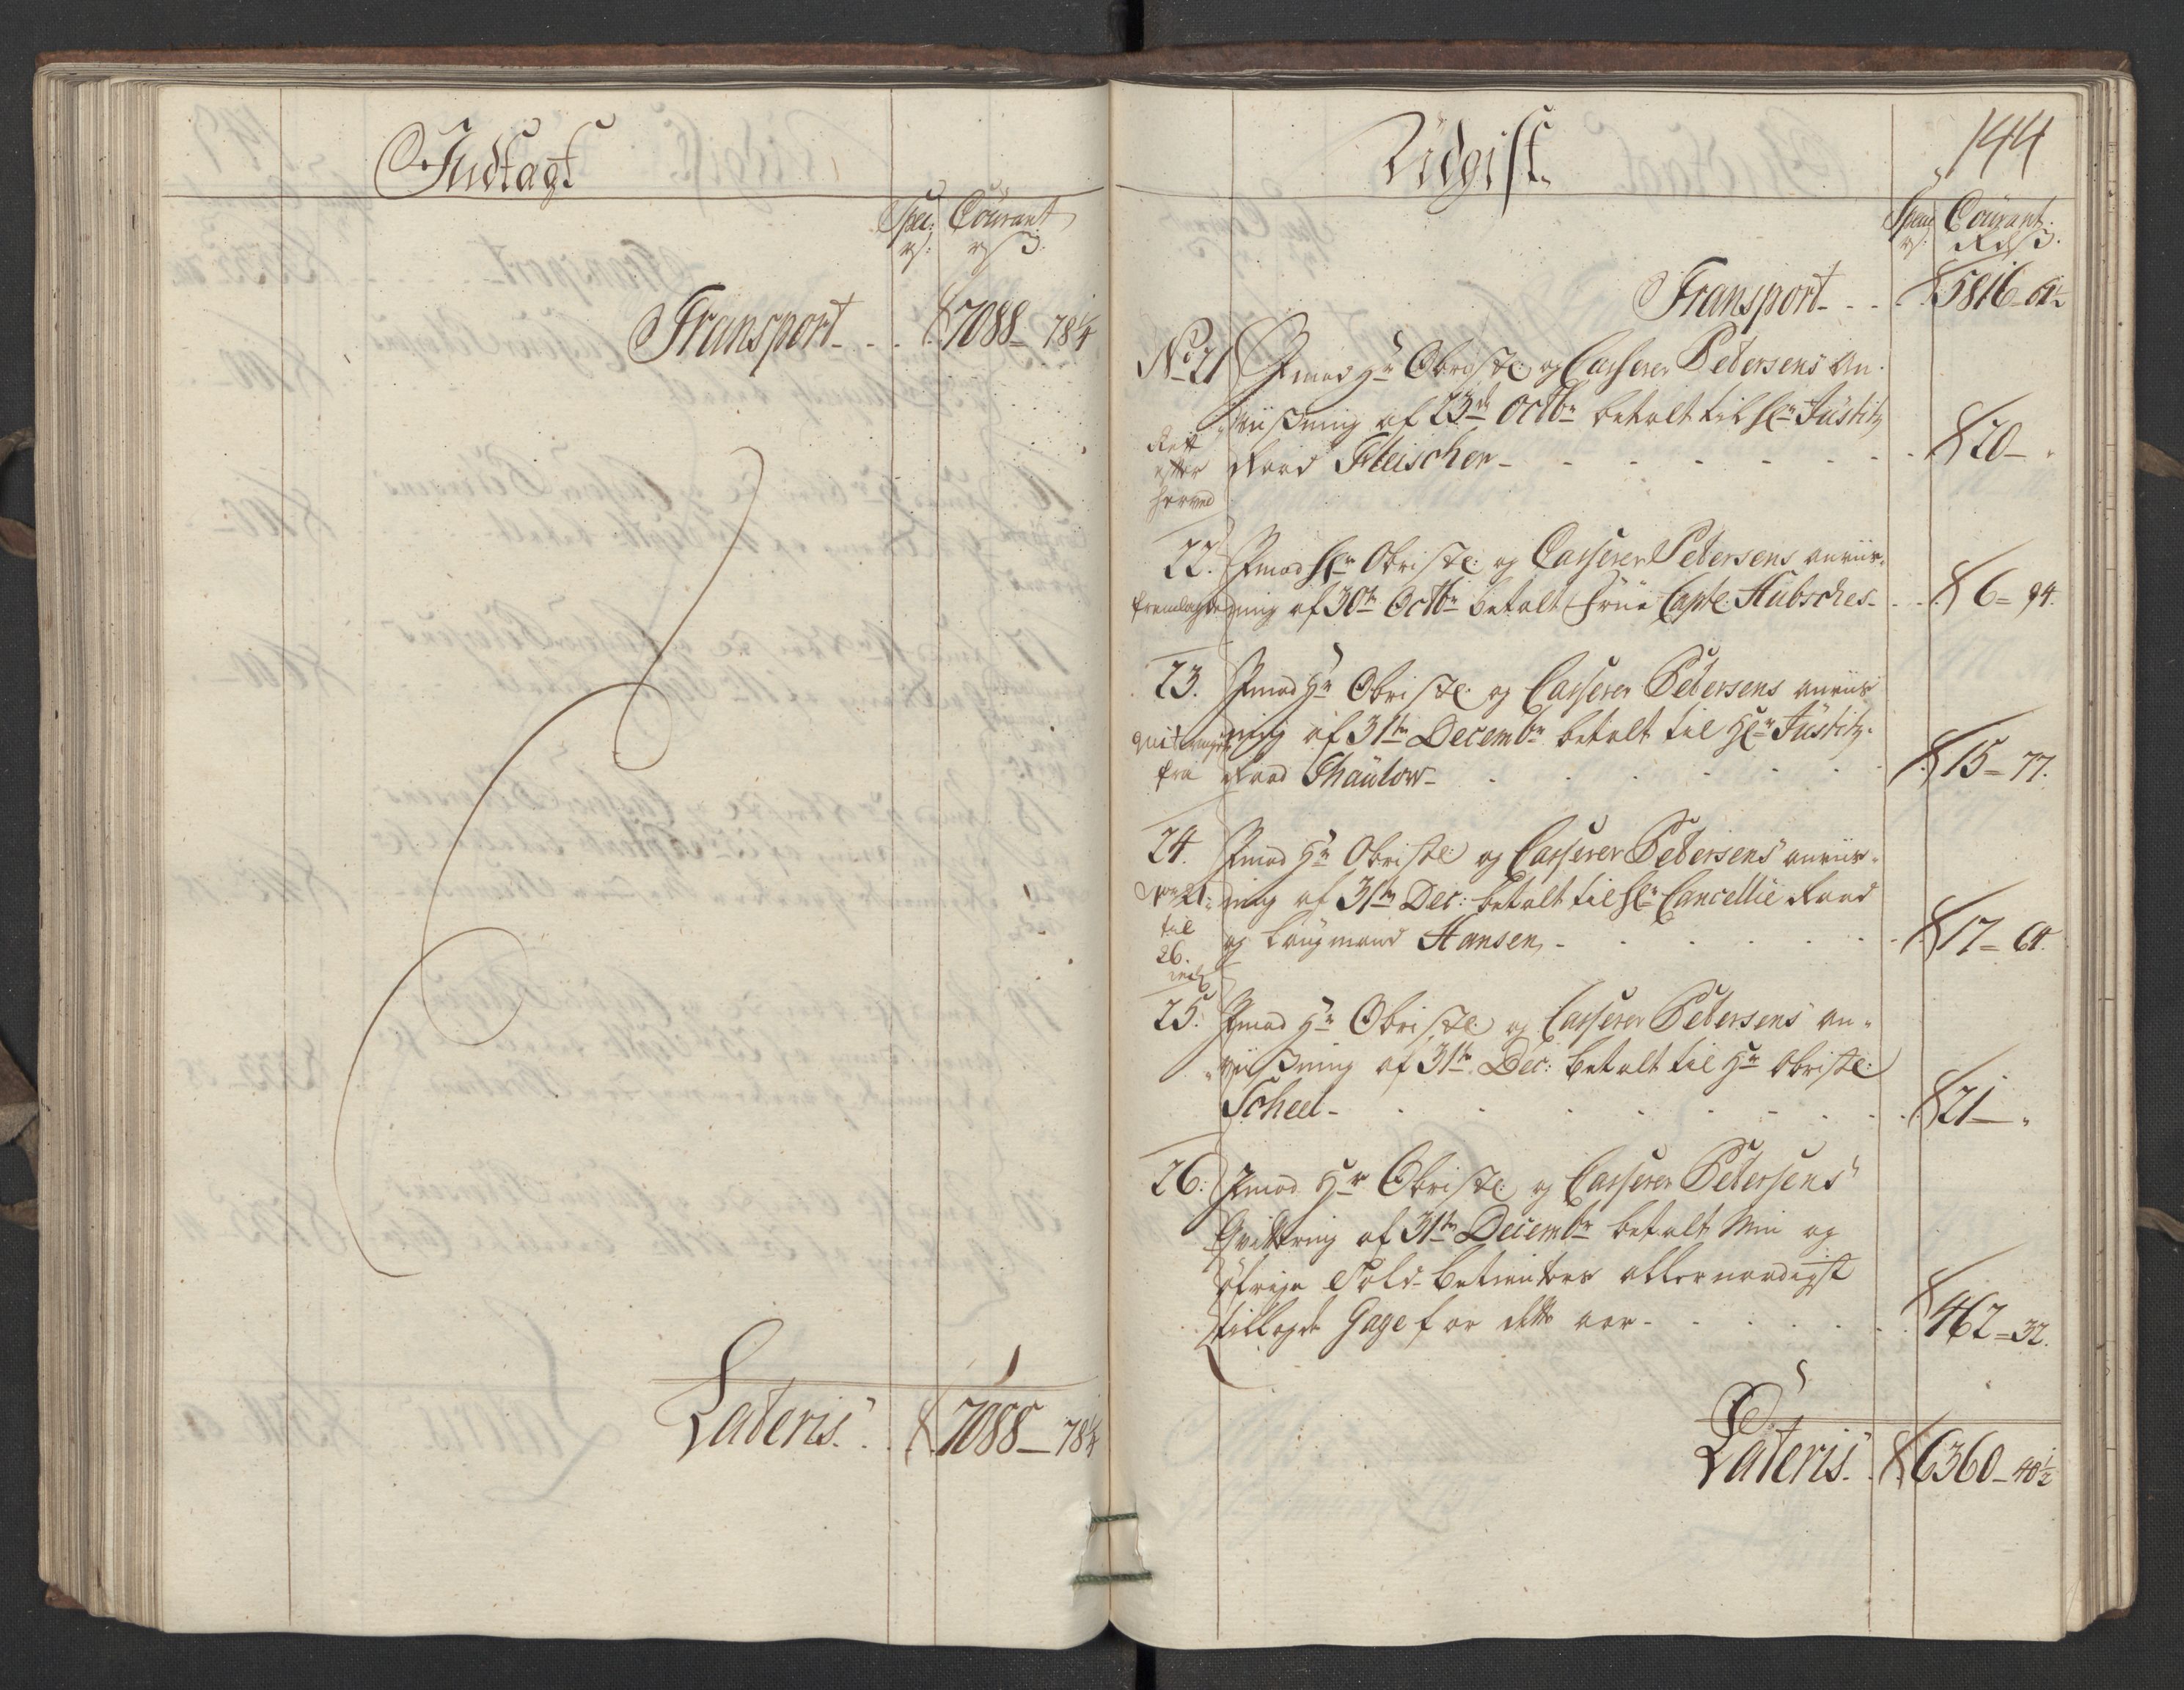 Indtægt
Spec: Courant
rd: rd ß
Transport - - 7088 - 78¼
Lateris. . . 7088 - 78¼
Udgift.
144
Spec Courant.
rd: Rd ß.
Transport - - - 5816 - 61½
No 21 Imod Hr Obristl: og Casserer Petersens An-
viisning af 23de Octbr betalt til Hr Justitz
Rett Raad Fleischer - 20 - "
efter
herved
22. Imod Hr Obristl: og Casserer Petersens anviis-
fremlagde ning af 30te Octbr betalt Frue Capt: Hübsches - 6 - 94.
23. Imod Hr Obristl: og Casserer Petersens anviis
qviteringer ning af 31te Decembr betalt til Hr Justitz-
fra Raad Thaulow - 15 - 77.
24. Imod Hr Obristl: og Casserer Petersens anviis-
No 21 ning af 31te Dec: betalt til Hr Cancellie Raad
til og Laugmand Hansen, - 17 - 64.
26.
incl
25. Imod Hr Obristl: og Casserer Petersens an-
viisning af 31te Dec: betalt til Hr Obristl:
Scheel - 21 - "
26. Imod Hr Obristl: og Casserer Petersens
Qvittering af 31te Decembr betalt Min og
øfrige Told-betienteres allernaadigst
tillagde Gage for dette aar - 462 - 32.
Lateris. . 6360 - 40½